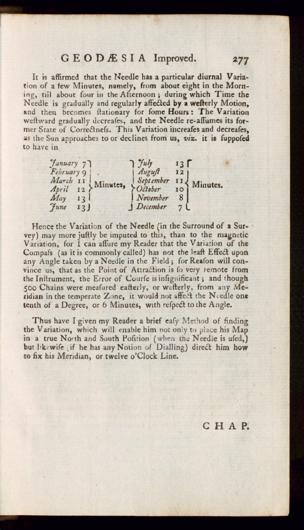 GEODÆSIA Improved. 277
It is affirmed that the Needle has a particular diurnal Varia-
tion of a few Minutes, namely, from about eight in the Morn-
ing, till about four in the Afternoon; during which Time the
Needle is gradually and regularly affected by a westerly Motion,
and then becomes stationary for some Hours: The Variation
westward gradually decreases, and the Needle re-assumes its for-
mer State of Correctness. This Variation increases and decreases,
as the Sun approaches to or declines from us, viz. it is supposed
to have in
January 7 July 13
February 9 August 12
March 11 September 11
April 12 Minutes, October 10 Minutes.
May 13 November 8
June 13 December 7
Hence the Variation of the Needle (in the Surround of a Sur-
vey) may more justly be imputed to this, than to the magnetic
Variation, for I can assure my Reader that the Variation of the
Compass (as it is commonly called) has not the least Effect upon
any Angle taken by a Needle in the Field; for Reason will con-
vince us, that as the Point of Attraction is so very remote from
the Instrument, the Error of Course is insignificant; and though
500 Chains were measured easterly, or westerly, from any Me-
ridian in the temperate Zone, it would not affect the Needle one
tenth of a Degree, or 6 Minutes, with respect to the Angle.
Thus have I given my Reader a brief easy Method of finding
the Variation, which will enable him not only to place his Map
in a true North and South Position (when the Needle is used,)
but likewise (if he has any Notion of Dialling) direct him how
to fix his Meridian, or twelve o'Clock Line.
CHAP.